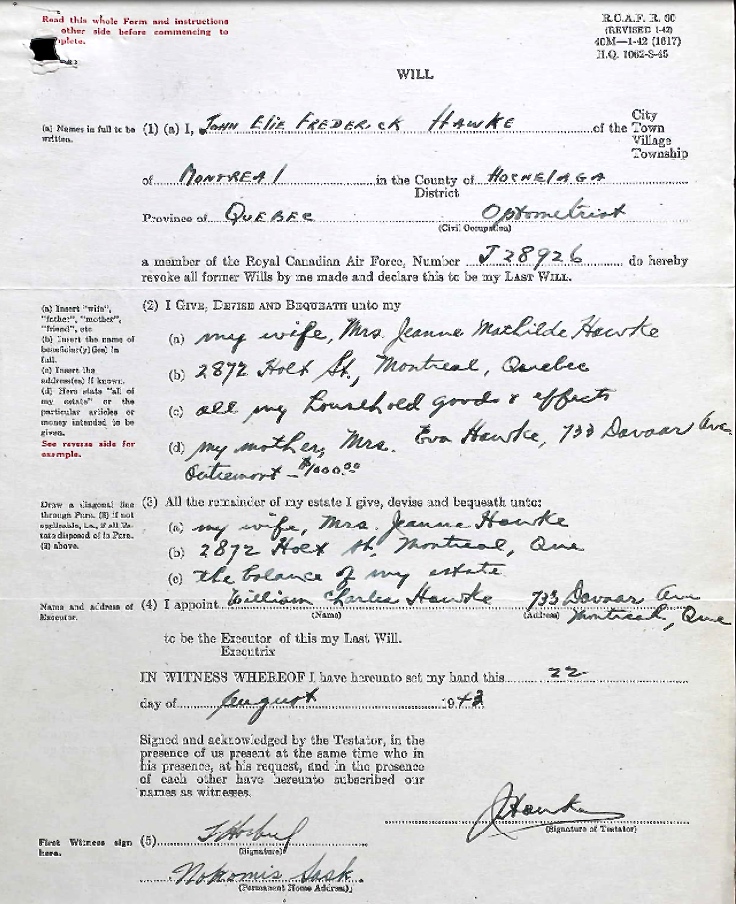 Read this whole Form and instructions
other side before commencing to
R.C.A.F. R. 90
(REVISED 1-42)
40M—1-42 (1617)
H.Q. 1062-8-45
WILL
(a) Names in full to be written.
(1) (a) I, JOHN ELIE FREDERICK HAWKE of the City Town Village Township
of MONTREAL in the County of HOCHELAGA
District
Province of QUEBEC Optometrist
(Civil Occupation)
a member of the Royal Canadian Air Force, Number J28926 do hereby
revoke all former Wills by me made and declare this to be my LAST WILL.
(a) Insert "wife",
"father", "mother",
"friend", etc
(b) Insert the name of
beneficiar(y)(ies) in
full.
(c) Insert the
address(es) if known.
(d) Here state "all of
my estate" or the
particular articles or
money intended to be
given.
See reverse side for
example.
(2) I GIVE, DEVISE AND BEQUEATH unto my
(a) my wife, Mrs. Jeanne Mathilde Hawke
(b) 2872 Holt St., Montreal, Quebec
(c) all my household goods & effects
(d) my mother, Mrs. Eva Hawke, 733 Davaar Ave
Outremont - $1000.00
Draw a diagonal line
through Para. (3) if not
applicable, i.e., if all Es-
tate disposed of in Para.
(2) above.
(3) All the remainder of my estate I give, devise and bequeath unto:
(a) my wife, Mrs. Jeanne Hawke
(b) 2872 Holt St, Montreal, Que
(c) the balance of my estate
Name and address of
Executor.
(4) I appoint William Charles Hawke 733 Davaar Ave
(Name) (Address) Montreal, Que
to be the Executor of this my Last Will.
Executrix
IN WITNESS WHEREOF I have hereunto set my hand this 22
day of August 1943
Signed and acknowledged by the Testator, in the
presence of us present at the same time who in
his presence, at his request, and in the presence
of each other have hereunto subscribed our
names as witnesses.
J Hawke
(Signature of Testator)
First Witness sign
here.
(5)
(Signature)
Nokomis Sask.
(Permanent Home Address)